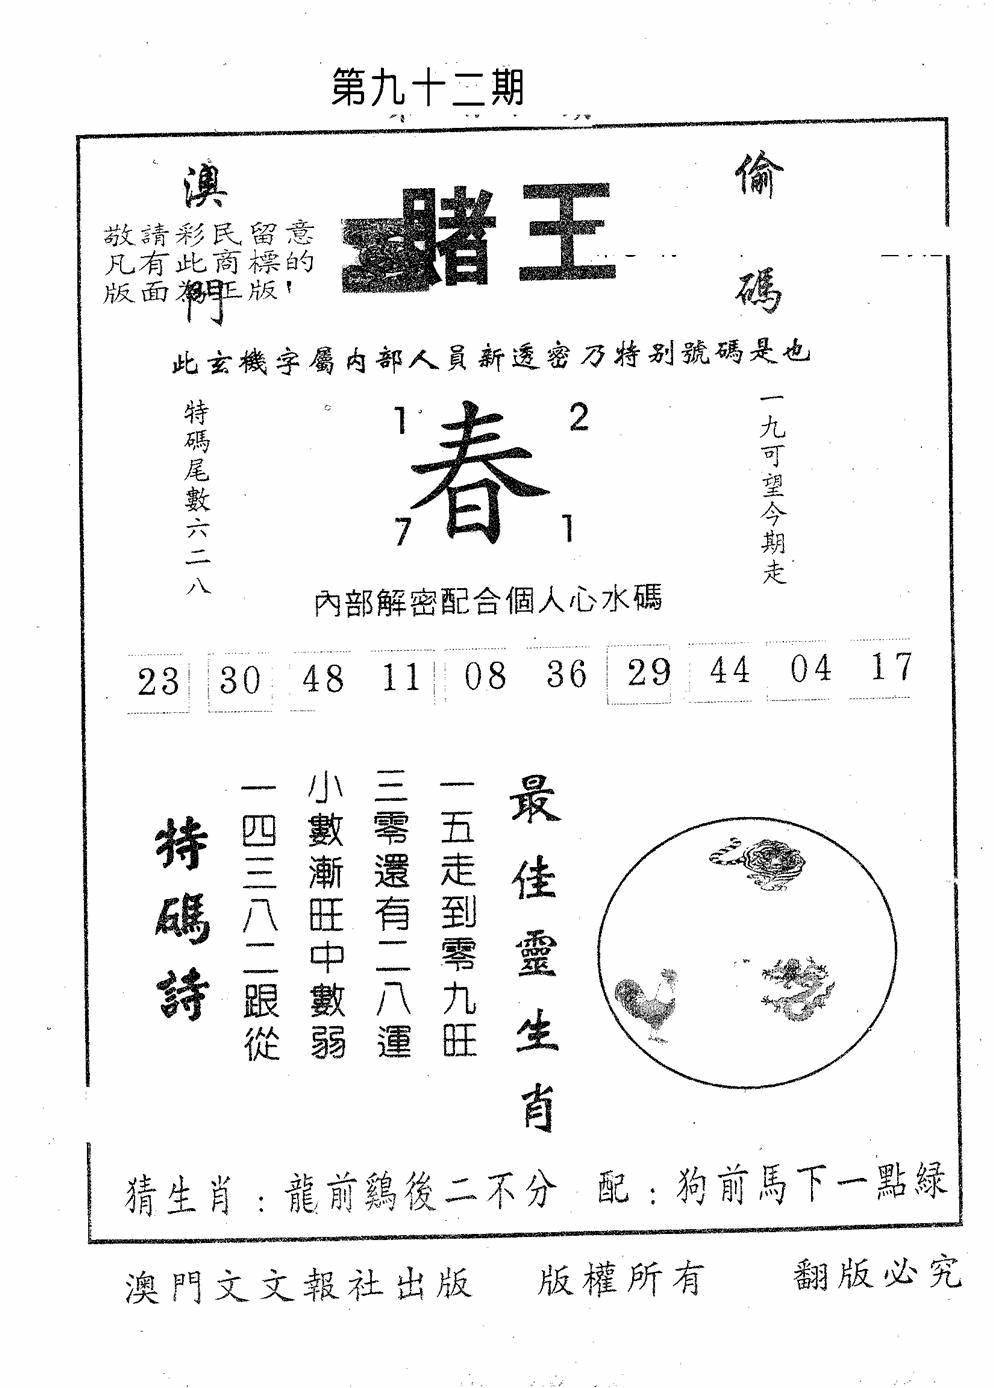 第九十二期
澳門
賭王
偷碼
敬請彩民留意
凡有此商標的
版面為正版!
此玄機字屬內部人員新透密乃特别號碼是也
特碼尾數六二八
1 2
春
7 1
一九可望今期走
內部解密配合個人心水碼
23 30 48 11 08 36 29 44 04 17
最佳靈生肖
一五走到零九旺
三零還有二八運
小數漸旺中數弱
一四三八二跟從
特碼詩
猜生肖:龍前鷄後二不分 配:狗前馬下一點緑
澳門文文報社出版 版權所有 翻版必究